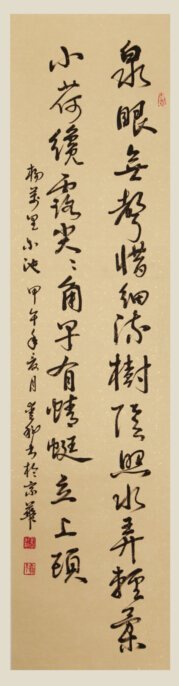 泉眼無聲惜細流樹陰照水弄輕柔
小荷纔露尖尖角早有蜻蜓立上頭
楊萬里小池甲午年於京華